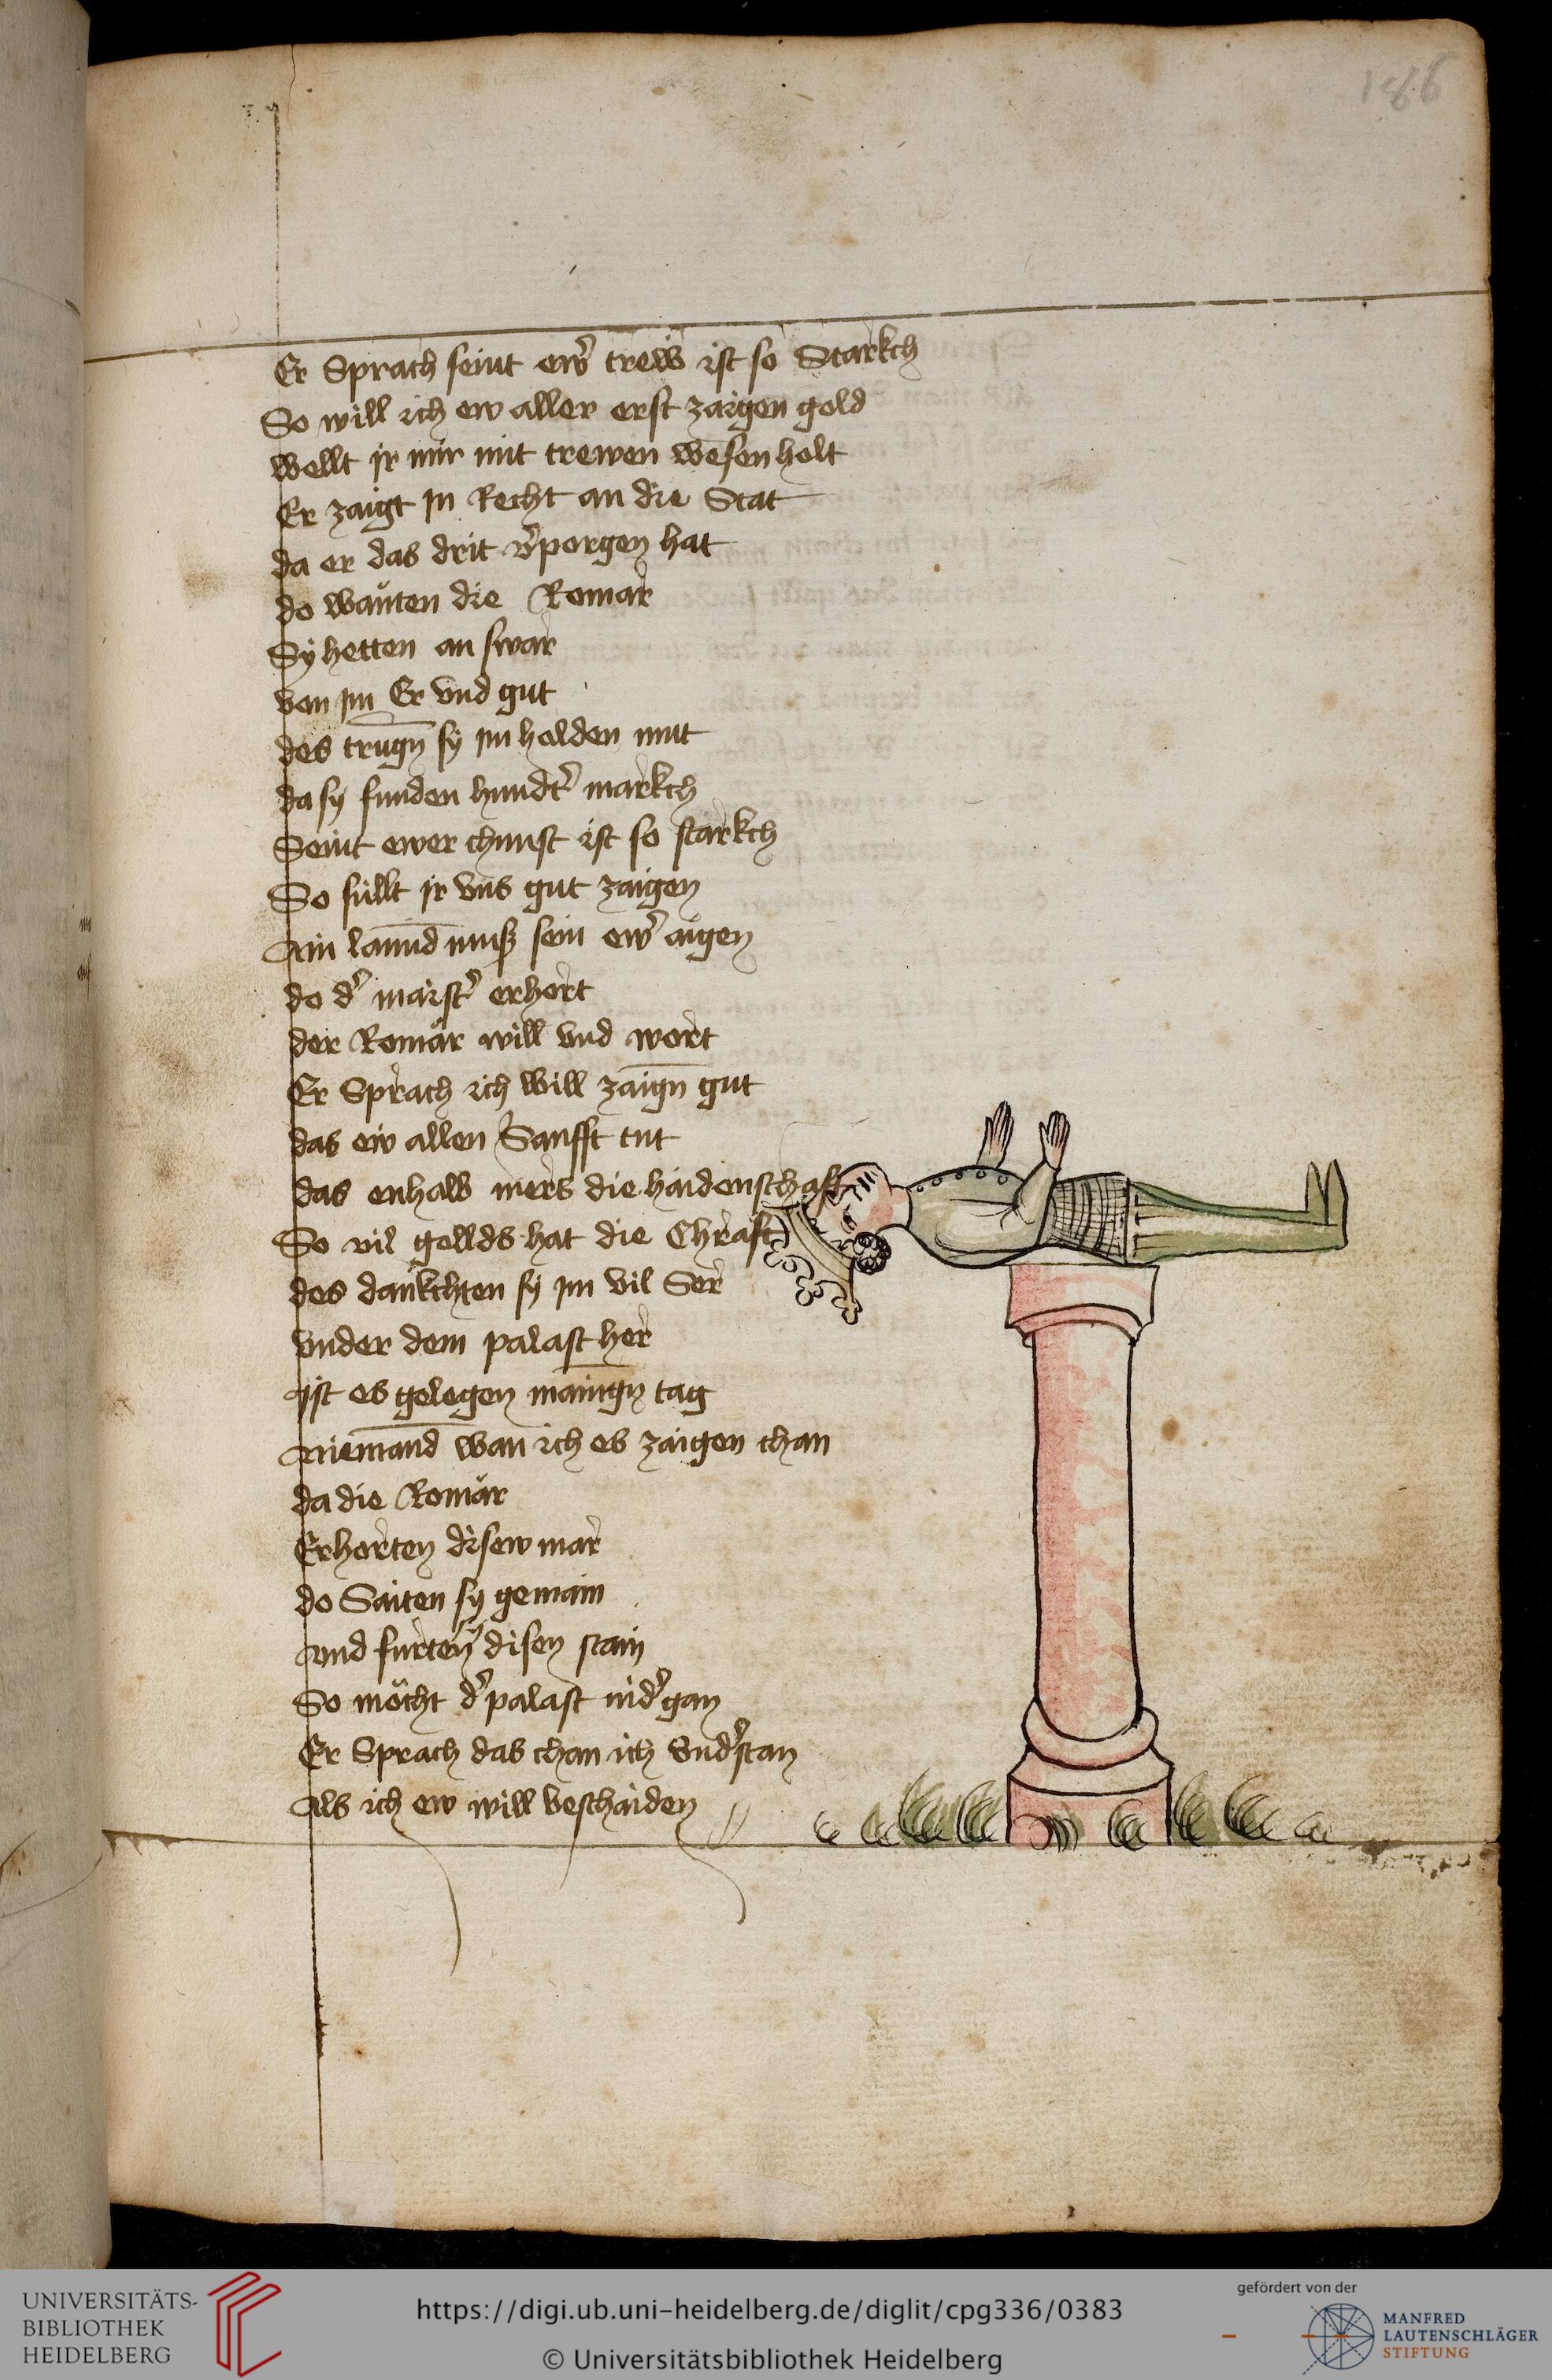 186
Er Sprach seint ew̃ trew ist so Starkch
So will ich ew aller erst zaigen gold
Wellt jr mir mit trewen wesen holt
Er zaigt jn Recht an die Stat
da er das drit ṽporgen hat
do wanten die Romär
Sy hetten an swär
von jm Er vnd gut
des trugn̄ sy jm holden mut
da sy funden hundt̃ markch
Seint ewer chunst ist so starkch
So süllt jr vns gut zaigen
Ain lannd muß sein ew̃ aigen
do d̃ maist̃ erhort
der Romär will vnd wort
Er Sprach ich will zaign̄ gut
das ew allen Sanfft tut
das enhalb mers die haidenschaft
So vil gollds hat die Chraft
des dankchten sy jm vil Ser
vnder dem palast her
ist es gelegen manign̄ tag
Niemand wan ich es zaigen chan
da die Romär
Erhorten disew mär
do Saiten sy gemain
vnd furten disen stain
So möcht d̃ palast nid̃ gan
Er Sprach das chan ich vnd̃stan
Als ich ew will beschaiden
UNIVERSITÄTS-
BIBLIOTHEK
HEIDELBERG
https://digi.ub.uni-heidelberg.de/diglit/cpg336/0383
© Universitätsbibliothek Heidelberg
gefördert von der
MANFRED
LAUTENSCHLÄGER
STIFTUNG